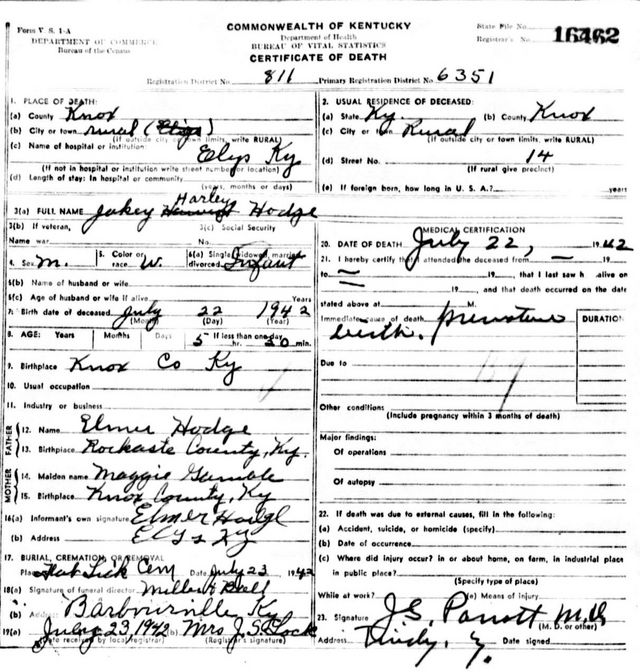 Form V. S. 1-A
DEPARTMENT OF COMMERCE
Bureau of the Census
COMMONWEALTH OF KENTUCKY
Department of Health
BUREAU OF VITAL STATISTICS
CERTIFICATE OF DEATH
State File No.
Registrar's No. 16462
Registration District No. 811 Primary Registration District No. 6351
1. PLACE OF DEATH:
(a) County Knox
(b) City or town rural
(If outside city or town limits, write RURAL)
(c) Name of hospital or institution:
Elys Ky
(If not in hospital or institution write street number or location)
(d) Length of stay: In hospital or community
(years, months or days)
2. USUAL RESIDENCE OF DECEASED:
(a) State Ky. (b) County Knox
(c) City or town Rural
(If outside city or town limits, write RURAL)
(d) Street No. 14
(If rural give precinct)
(e) If foreign born, how long in U. S. A.? years
3(a) FULL NAME Jakey Harley Hodge
3(b) If veteran, 3(c) Social Security
Name war No.
4. Sex M. 5. Color or race W. 6(a) Single, widowed, married, divorced Infant
6(b) Name of husband or wife
6(c) Age of husband or wife if alive Years
7. Birth date of deceased July 22 1942
(Month) (Day) (Year)
8. AGE: Years Months Days If less than one day
5 hr. 20 min.
9. Birthplace Knox Co Ky
10. Usual occupation
11. Industry or business
FATHER
12. Name Elmer Hodge
13. Birthplace Rockaste County, Ky.
MOTHER
14. Maiden name Maggie Gamble
15. Birthplace Knox County, Ky
16(a) Informant's own signature Elmer Hodge
(b) Address Elys Ky
17. BURIAL, CREMATION, OR REMOVAL
Place Flat Lick Cem Date July 23 1942
18(a) Signature of funeral director
(b) Address Barbourville Ky
19(a) July 23, 1942 (b) Mrs J. S.
(Date received by local registrar) (Registrar's signature)
MEDICAL CERTIFICATION
20. DATE OF DEATH July 22, 1942
21. I hereby certify that I attended the deceased from — 19
to — 19 , that I last saw h alive on
19 , and that death occurred on the date
stated above at M.
Immediate cause of death premature
birth.
DURATION
Due to
Other conditions
(Include pregnancy within 3 months of death)
Major findings:
Of operations
Of autopsy
22. If death was due to external causes, fill in the following:
(a) Accident, suicide, or homicide (specify)
(b) Date of occurrence
(c) Where did injury occur? in or about home, on farm, in industrial place
in public place?
(Specify type of place)
While at work? (e) Means of injury
23. Signature J. S. Parrott M.D
(M. D. or other)
Date signed